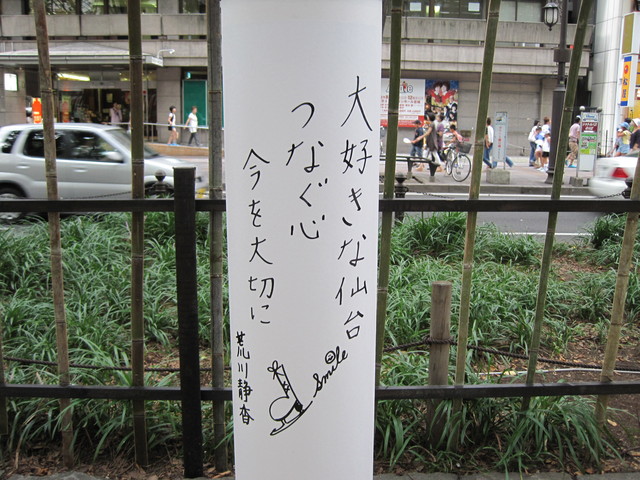 大好きな仙台
つなぐ心
今を大切に
荒川静香
Smile